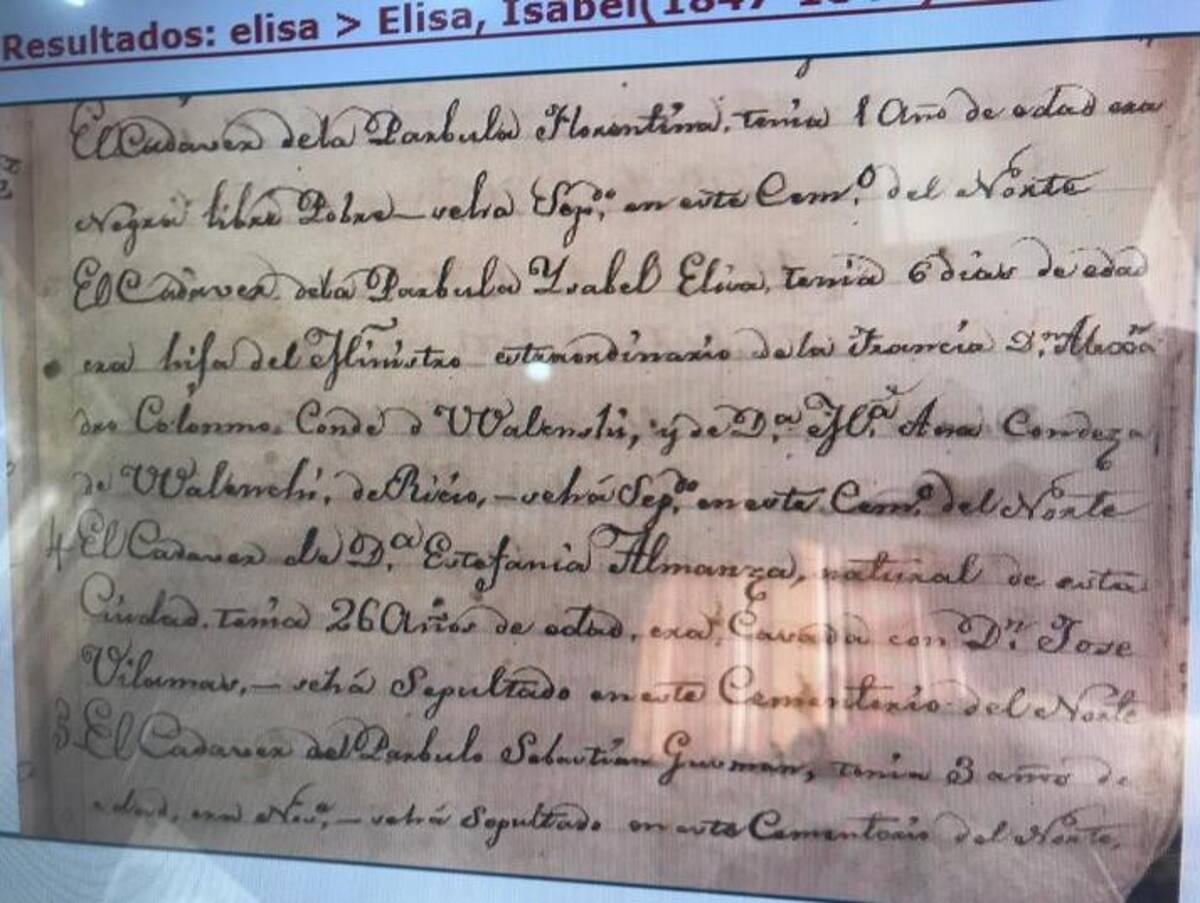 Resultados: elisa > Elisa, Isabel(1847
El Cadaver dela Parbula Florentina, tenia 1 Año de edad era
Negra libre Pobre – sehá Sepdo. en este Cemo. del Norte
El Cadaver dela Parbula Ysabel Elisa, tenia 6 dias de edad
era hija del Ministro estraordinario de la Francia Dn. Alexan
dro Colonna Conde d Walenski, y de Da. Ma. Ana Condeza
de Walenski, de Ricio, – sehá Sepdo. en este Cemo. del Norte
4 El Cadaver de Da. Estefania Almanza, natural de esta
Ciudad, tenia 26 Años de edad, era Casada con Dn. Jose
Vilamas, – sehá Sepultado en este Cementerio del Norte
3 El Cadaver del Parbulo Sebastian Gusman, tenia 3 años de
edad, era – sehá Sepultado en este Cementerio del Norte.